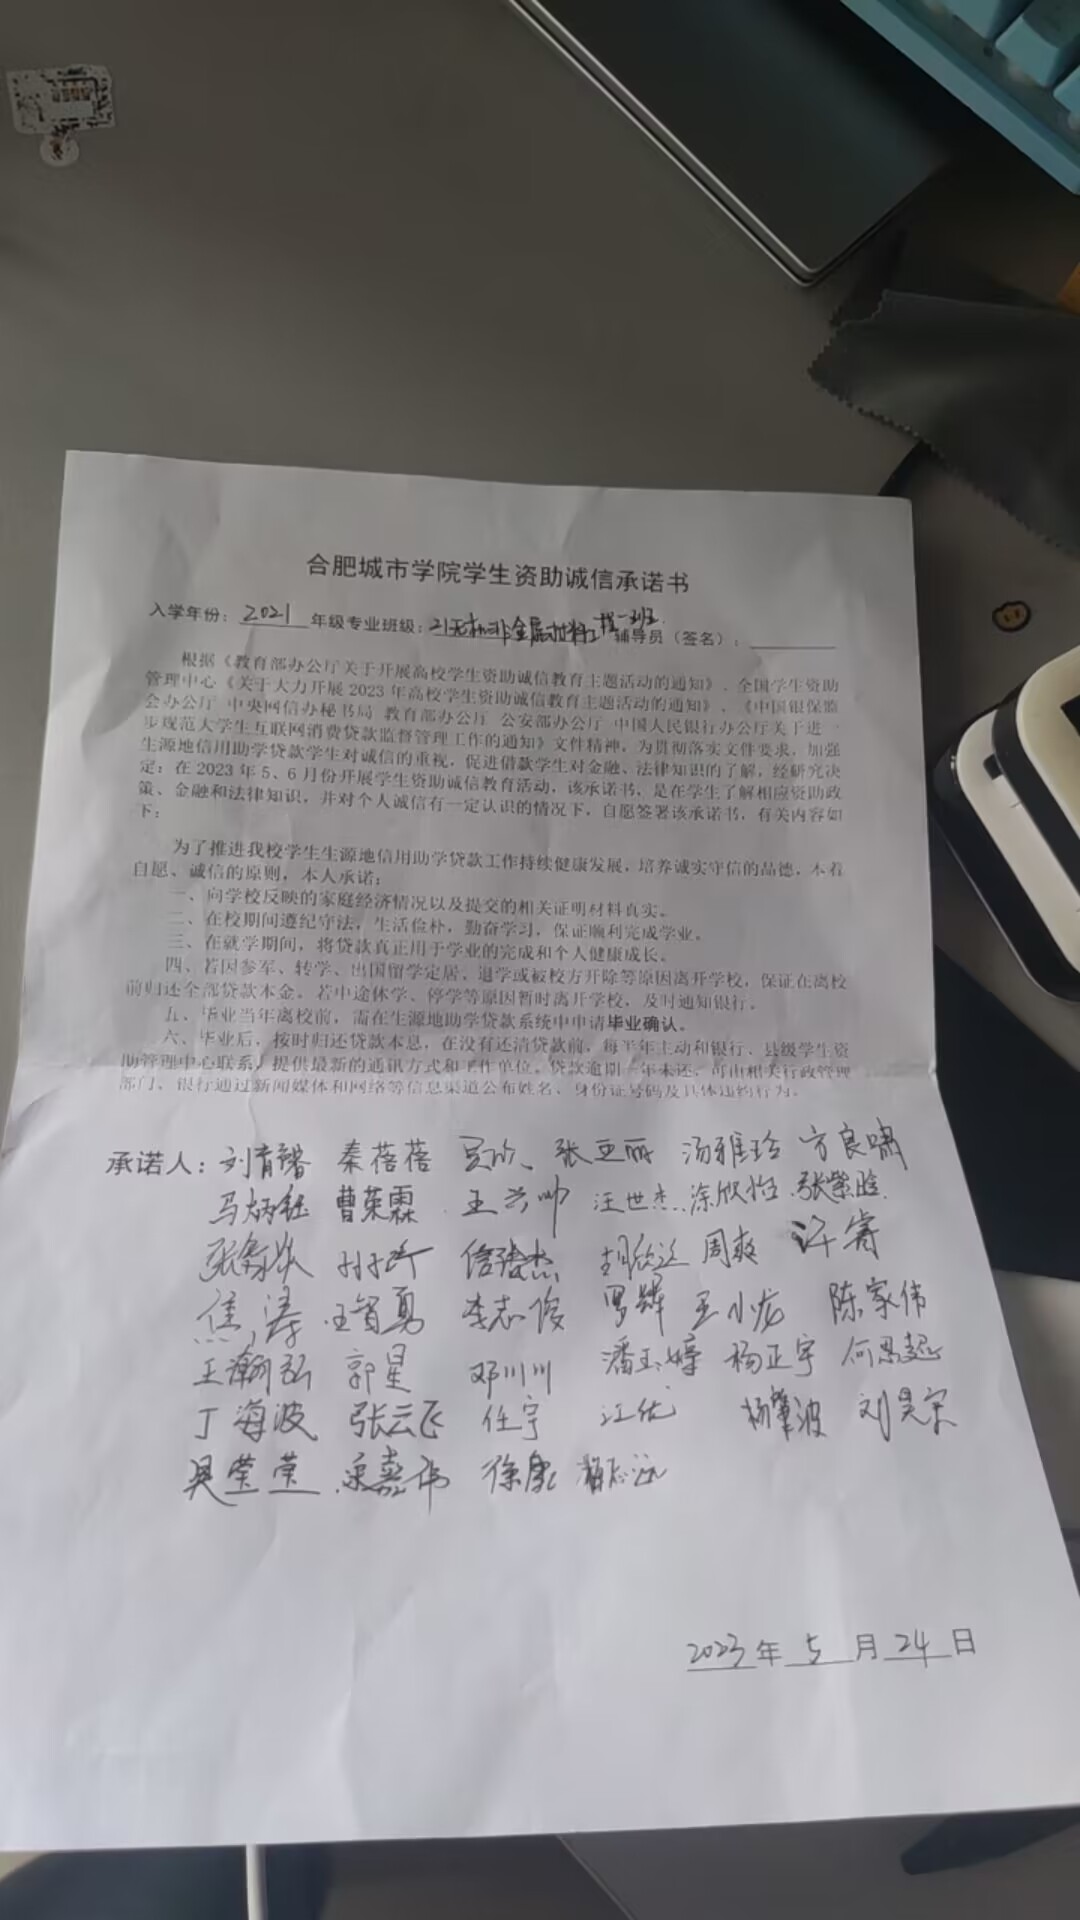 合肥城市学院学生资助诚信承诺书
入学年份：2021 年级专业班级：21无机非金属材料工程一班 辅导员（签名）：
根据《教育部办公厅关于开展高校学生资助诚信教育主题活动的通知》、全国学生资助
管理中心《关于大力开展 2023 年高校学生资助诚信教育主题活动的通知》、《中国银保监
会办公厅 中央网信办秘书局 教育部办公厅 公安部办公厅 中国人民银行办公厅关于进一
步规范大学生互联网消费贷款监督管理工作的通知》文件精神，为贯彻落实文件要求，加强
生源地信用助学贷款学生对诚信的重视，促进借款学生对金融、法律知识的了解，经研究决
定：在 2023 年 5、6 月份开展学生资助诚信教育活动，该承诺书，是在学生了解相应资助政
策、金融和法律知识，并对个人诚信有一定认识的情况下，自愿签署该承诺书，有关内容如
下：
为了推进我校学生生源地信用助学贷款工作持续健康发展，培养诚实守信的品德，本着
自愿、诚信的原则，本人承诺：
一、向学校反映的家庭经济情况以及提交的相关证明材料真实。
二、在校期间遵纪守法，生活俭朴，勤奋学习，保证顺利完成学业。
三、在就学期间，将贷款真正用于学业的完成和个人健康成长。
四、若因参军、转学、出国留学定居、退学或被校方开除等原因离开学校，保证在离校
前归还全部贷款本金。若中途休学、停学等原因暂时离开学校，及时通知银行。
五、毕业当年离校前，需在生源地助学贷款系统中申请毕业确认。
六、毕业后，按时归还贷款本息，在没有还清贷款前，每半年主动和银行、县级学生资
助管理中心联系，提供最新的通讯方式和工作单位。贷款逾期一年未还，可由相关行政管理
部门、银行通过新闻媒体和网络等信息渠道公布姓名、身份证号码及具体违约行为。
承诺人：刘青馨 秦蓓蓓 张亚丽 汤雅玲 方良啸
马炳钰 曹荣霖 王兴帅 汪世杰 涂欣怡 张紫晗
周爽 许睿
焦涛 王智勇 李志俊 罗辉 王小龙 陈家伟
王瀚弘 郭星 邓川川 潘玉婷 杨正宇 何思超
丁海波 张云飞 任宇 江优 杨肇波 刘昊宗
吴莹莹 徐康
2023年 5 月 24 日